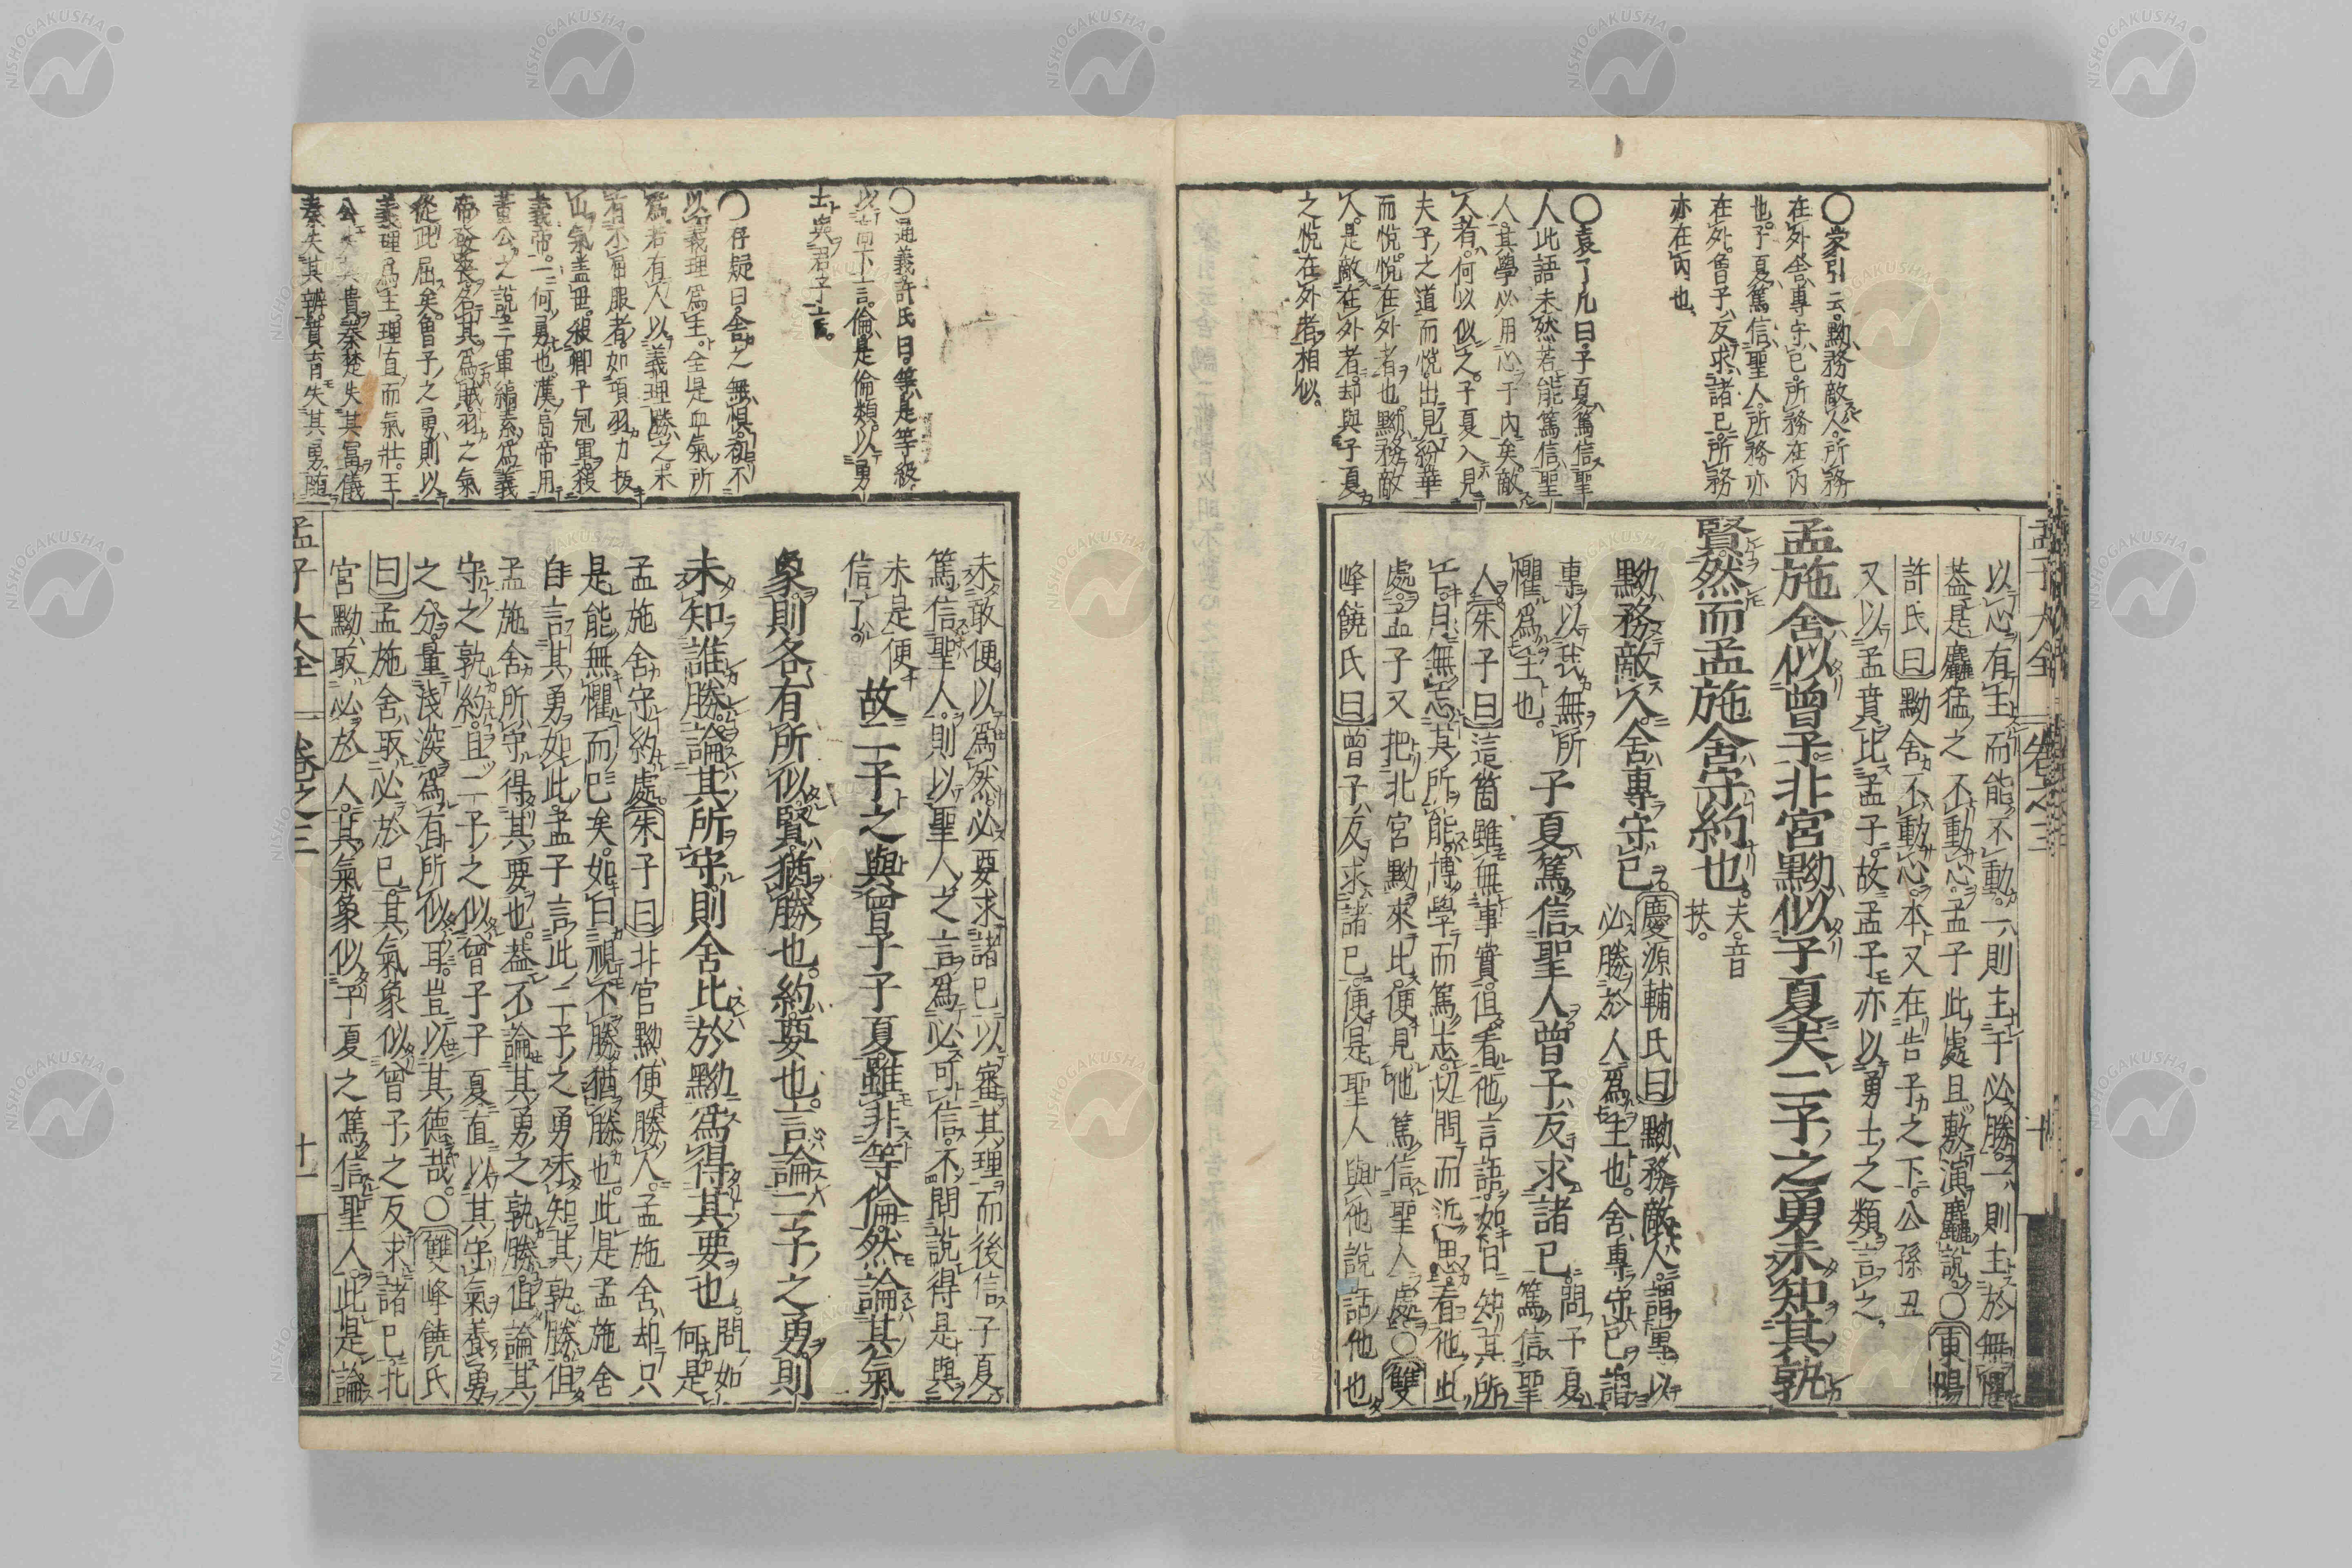 孟子大全
卷之三
十
○蒙引云黝務敵人所務
在外舍專守己所務在內
也子夏篤信聖人所務亦
在外曾子反求諸己所務
亦在內也
○袁了凡曰子夏篤信聖
人此語未然若能篤信聖
人其學必用心于內矣敵
人者何以似之子夏入見
夫子之道而悅出見紛華
而悅悅在外者也黝務敵
人是敵在外者却與子夏
之悅在外者相似
以心有主而能不動一則主于必勝一則主於無懼
蓋是麤猛之不動心孟子此處且敷演麤說○東陽
許氏曰黝舍不動心本又在告子之下公孫丑
又以孟賁比孟子故孟子亦以勇士之類言之
孟施舍似曾子北宮黝似子夏夫二子之勇未知其孰
賢然而孟施舍守約也夫音扶
黝務敵人舍專守己慶源輔氏曰黝務敵人謂專以必勝於人爲主也舍專守己謂
專以我無所懼爲主也子夏篤信聖人曾子反求諸己問子夏篤信聖
人朱子曰這箇雖無事實但看他言語如曰知其所
亡月無忘其所能博學而篤志切問而近思看他此
處孟子又把北宮黝來比便見他篤信聖人處○雙
峰饒氏曰曾子反求諸己便是聖人與他說話他也
○通義許氏曰等是等級
以高下言倫是倫類以勇
士與君子言
○存疑曰舍之無懼初不
以義理爲主全是血氣所
爲若有人以義理勝之未
有不屈服者如項羽力拔
山氣盖世殺卿子冠軍殺
義帝一何勇也漢高帝用
董公之說三軍縞素爲義
帝發喪名其爲賊羽之氣
從此屈矣曾子之勇則以
義理爲主理直而氣壯王
公失其貴秦楚失其富儀
秦失其辨賁育失其勇隨
未敢便以爲然必要求諸己以審其理而後信子夏
篤信聖人則以聖人之言爲必可信不問說得是與
未是便信了故二子之與曾子子夏雖非等倫然論其氣
象則各有所似賢猶勝也約要也言論二子之勇則
未知誰勝論其所守則舍比於黝爲得其要也問如何是
孟施舍守約處朱子曰北宮黝便勝人孟施舍却只
是能無懼而已矣如曰視不勝猶勝也此是孟施舍
自言其勇如此孟子言此二子之勇未知其孰勝但
孟施舍所守得其要也蓋不論其勇之孰勝但論其
守之孰約且二子之似曾子子夏直以其守氣養勇
之分量淺深爲有所似耳豈以其德哉○雙峰饒氏
曰孟施舍取必於己其氣象似曾子之反求諸己北
宮黝取必於人其氣象似子夏之篤信聖人此是論
孟子大全
卷之三
十一